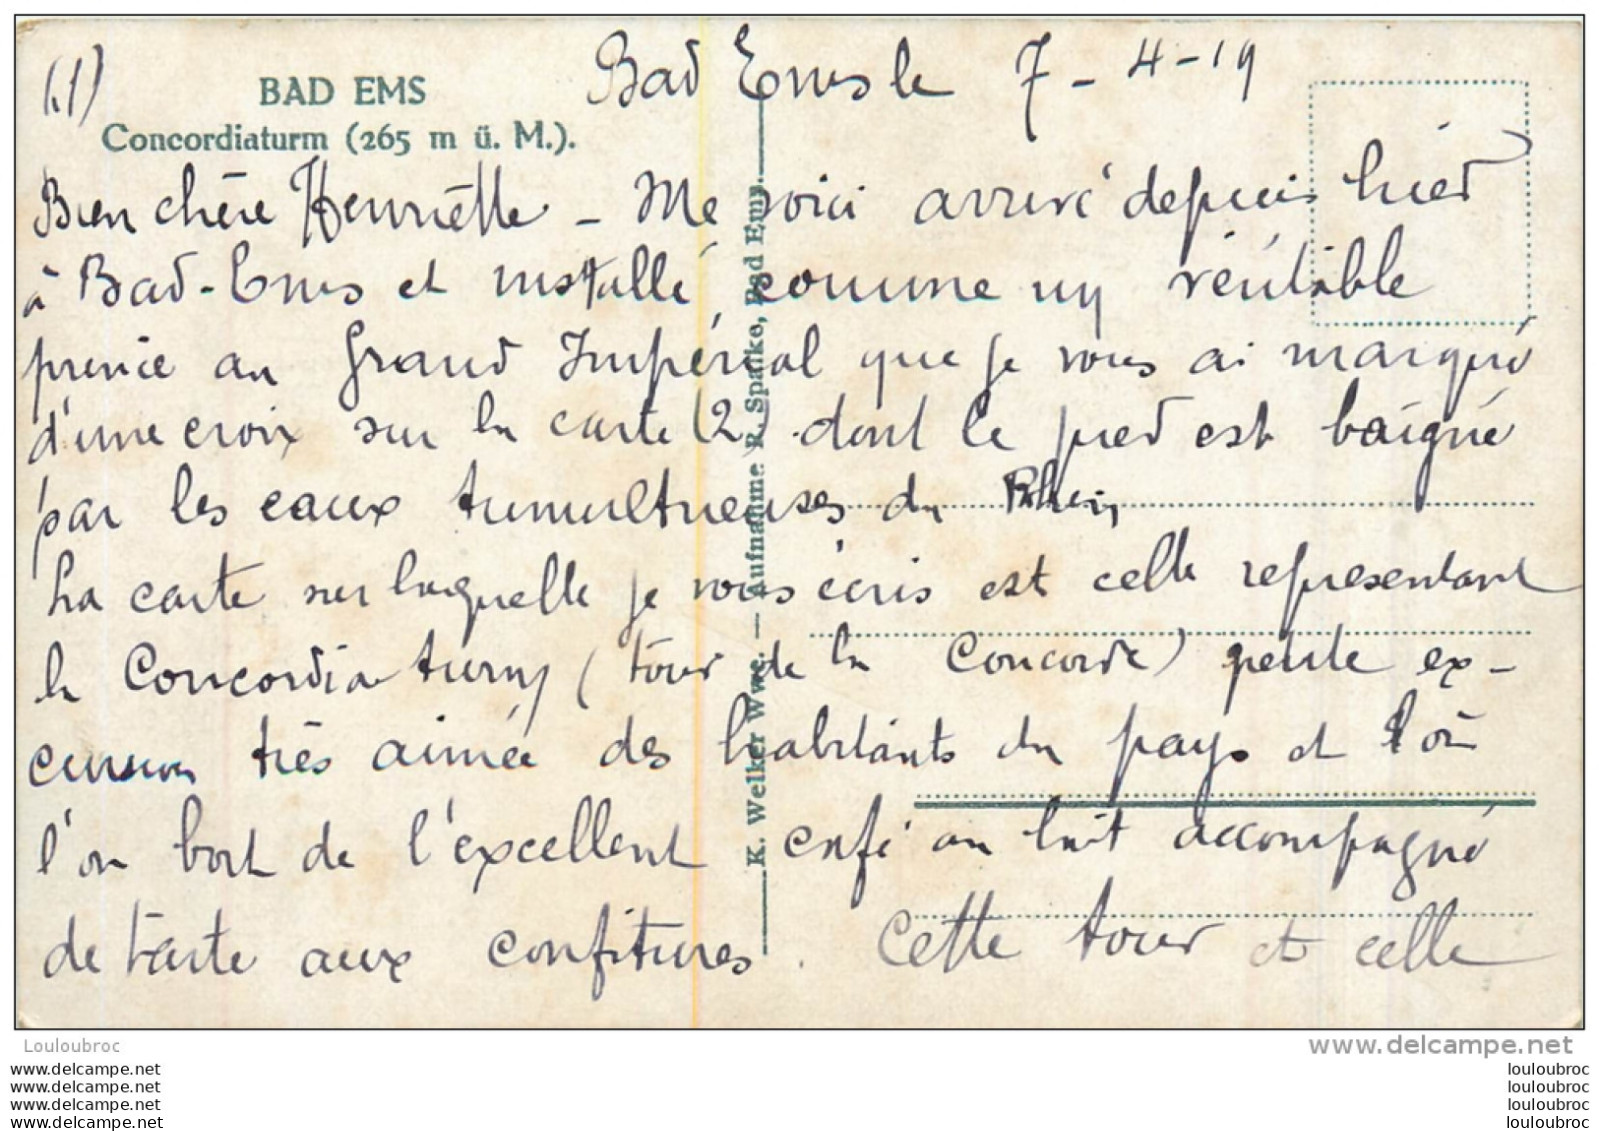 (1)
BAD EMS
Concordiaturm (265 m ü. M.).
Bad Ems le 7-4-19
Bien chère Henriette - Me voici arrivé depuis hier
à Bad-Ems et installé comme un véritable
prince au Grand Impérial que je vous ai marqué
d'une croix sur la carte (2) dont le pied est baigné
par les eaux tumultueuses du Rhein
La carte sur laquelle je vous écris est celle representant
la Concordia turm (tour de la Concorde) petite ex-
cursion très aimée des habitants du pays et l'où
l'on boit de l'excellent café au lait accompagné
de tarte aux confitures. Cette tour et celle
K. Welker Wwe. — Aufnahme R. Spalke, Bad Ems.
Louloubroc
www.delcampe.net
www.delcampe.net
www.delcampe.net
www.delcampe.net
www.delcampe.net
louloubroc
louloubroc
louloubroc
louloubroc